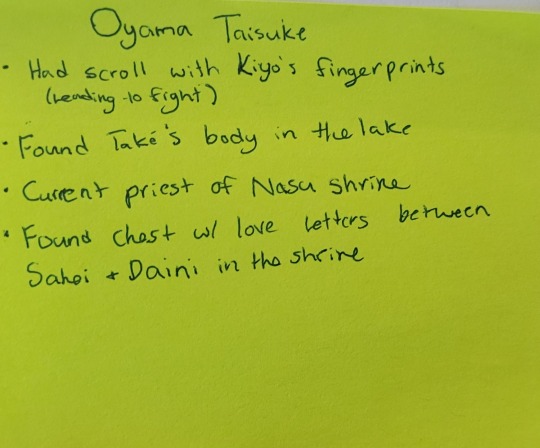 Oyama Taisuke
• Had scroll with Kiyo's fingerprints
(leading to fight)
• Found Také's body in the lake
• Current priest of Nasu shrine
• Found chest w/ love letters between
Sahei + Daini in the shrine